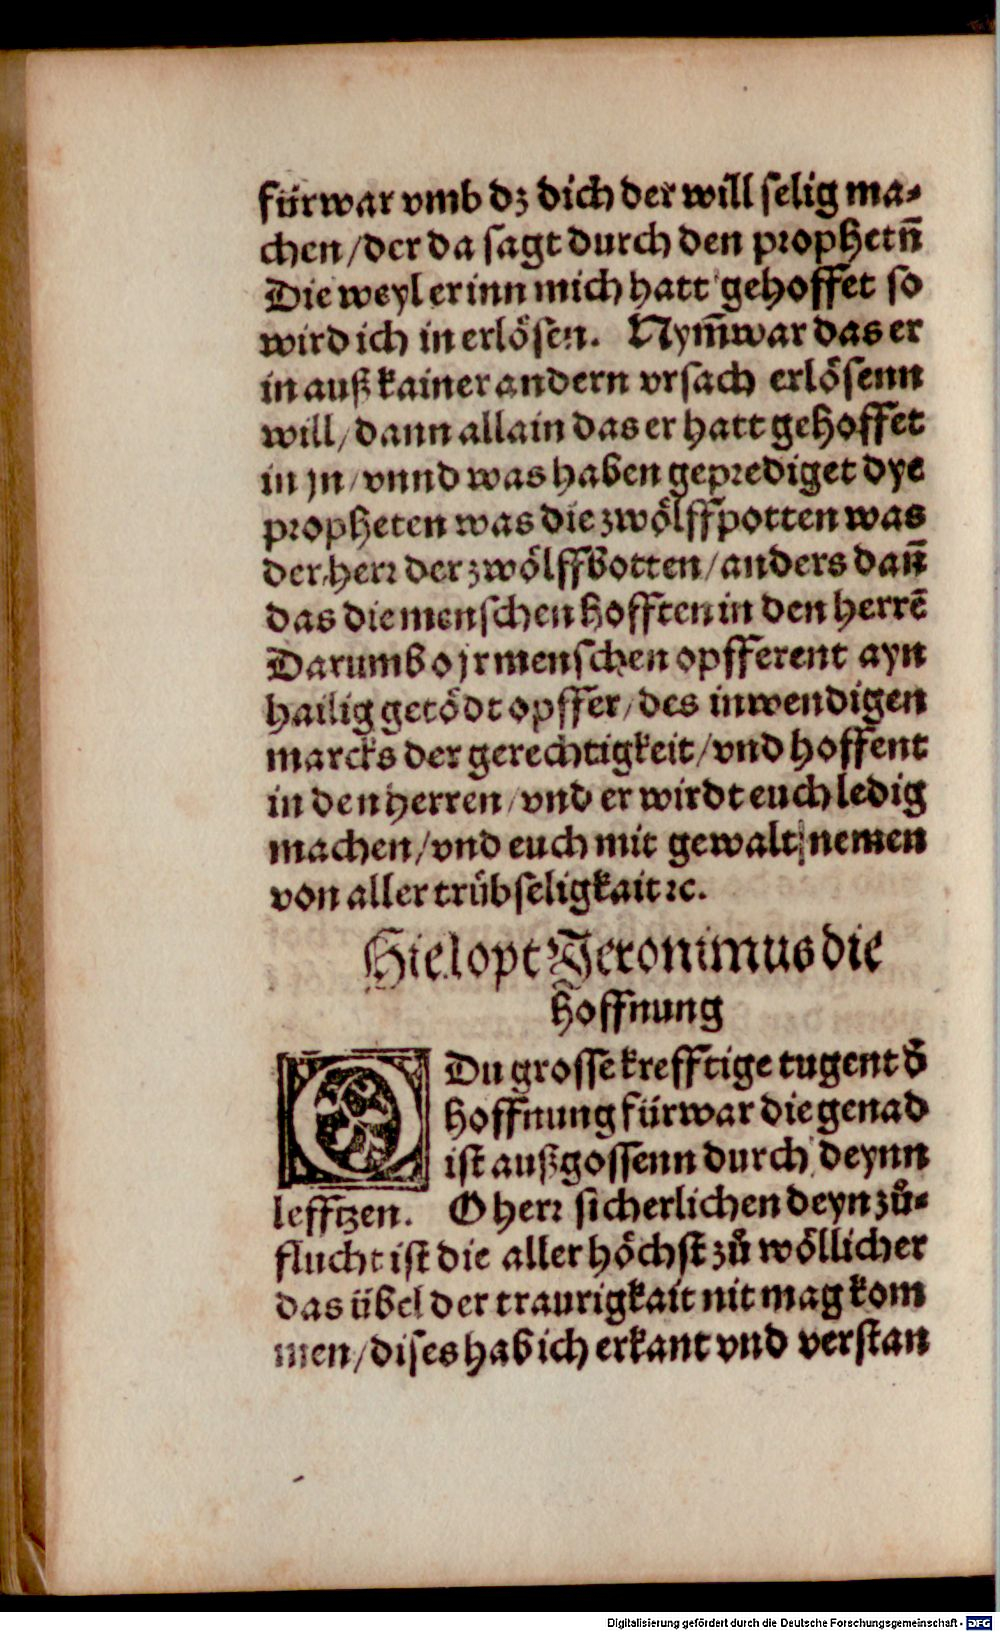 fürwar vmb dz dich der will selig ma⸗
chen/der da sagt durch den prophetn̄
Die weyl er inn mich hatt gehoffet so
wird ich in erlösen. Nym̄war das er
in auß kainer andern vrsach erlösenn
will/dann allain das er hatt gehoffet
in jn/vnnd was haben geprediget dye
propheten was die zwölffpotten was
der herr der zwölffbotten/anders dan̄
das die menschen hofften in den herrē
Darumb o jr menschen opfferent ayn
hailig getödt opffer/des inwendigen
marcks der gerechtigkeit/vnd hoffent
in den herren/vnd er wirdt euch ledig
machen/vnd euch mit gewalt nemen
von aller trübseligkait ꝛc.
Hie lopt Jeronimus die
hoffnung
O Du grosse krefftige tugent d̄
hoffnung fürwar die genad
ist außgossenn durch deynn
lefftzen. O herr sicherlichen deyn zů⸗
flucht ist die aller höchst zů wöllicher
das übel der traurigkait nit mag kom
men/dises hab ich erkant vnd verstan
Digitalisierung gefördert durch die Deutsche Forschungsgemeinschaft - DFG